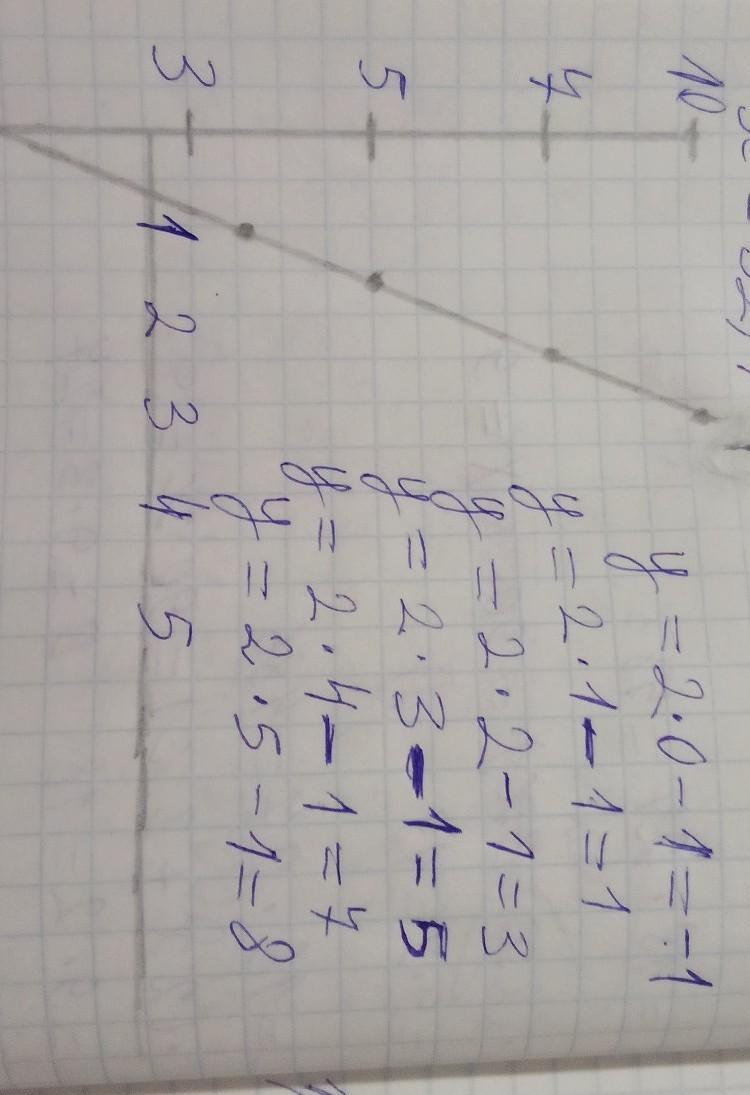 10
7
5
3
1 2 3 4 5
y = 2·0 - 1 = -1
y = 2·1 - 1 = 1
y = 2·2 - 1 = 3
y = 2·3 - 1 = 5
y = 2·4 - 1 = 7
y = 2·5 - 1 = 8